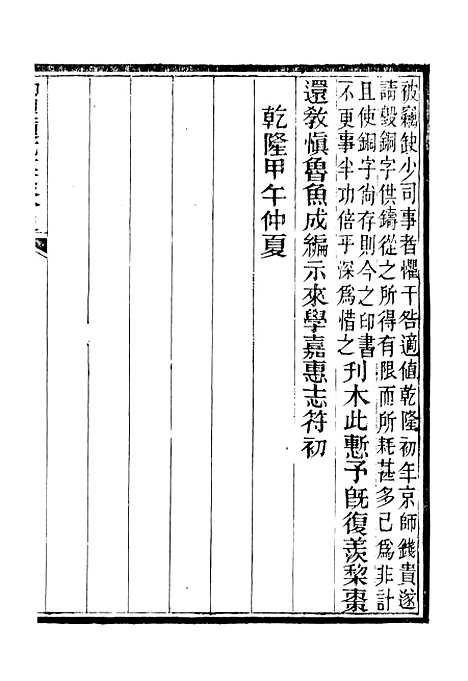 被竊缺少司事者懼干咎適值乾隆初年京師錢貴遂
請毀銅字供鑄從之所得有限而所耗甚多已為非計
且使銅字尚存則今之印書
不更事半功倍乎深為惜之
刋木此慙予旣復羨黎棗
還教慎魯魚成編示來學嘉惠志符初
乾隆甲午仲夏